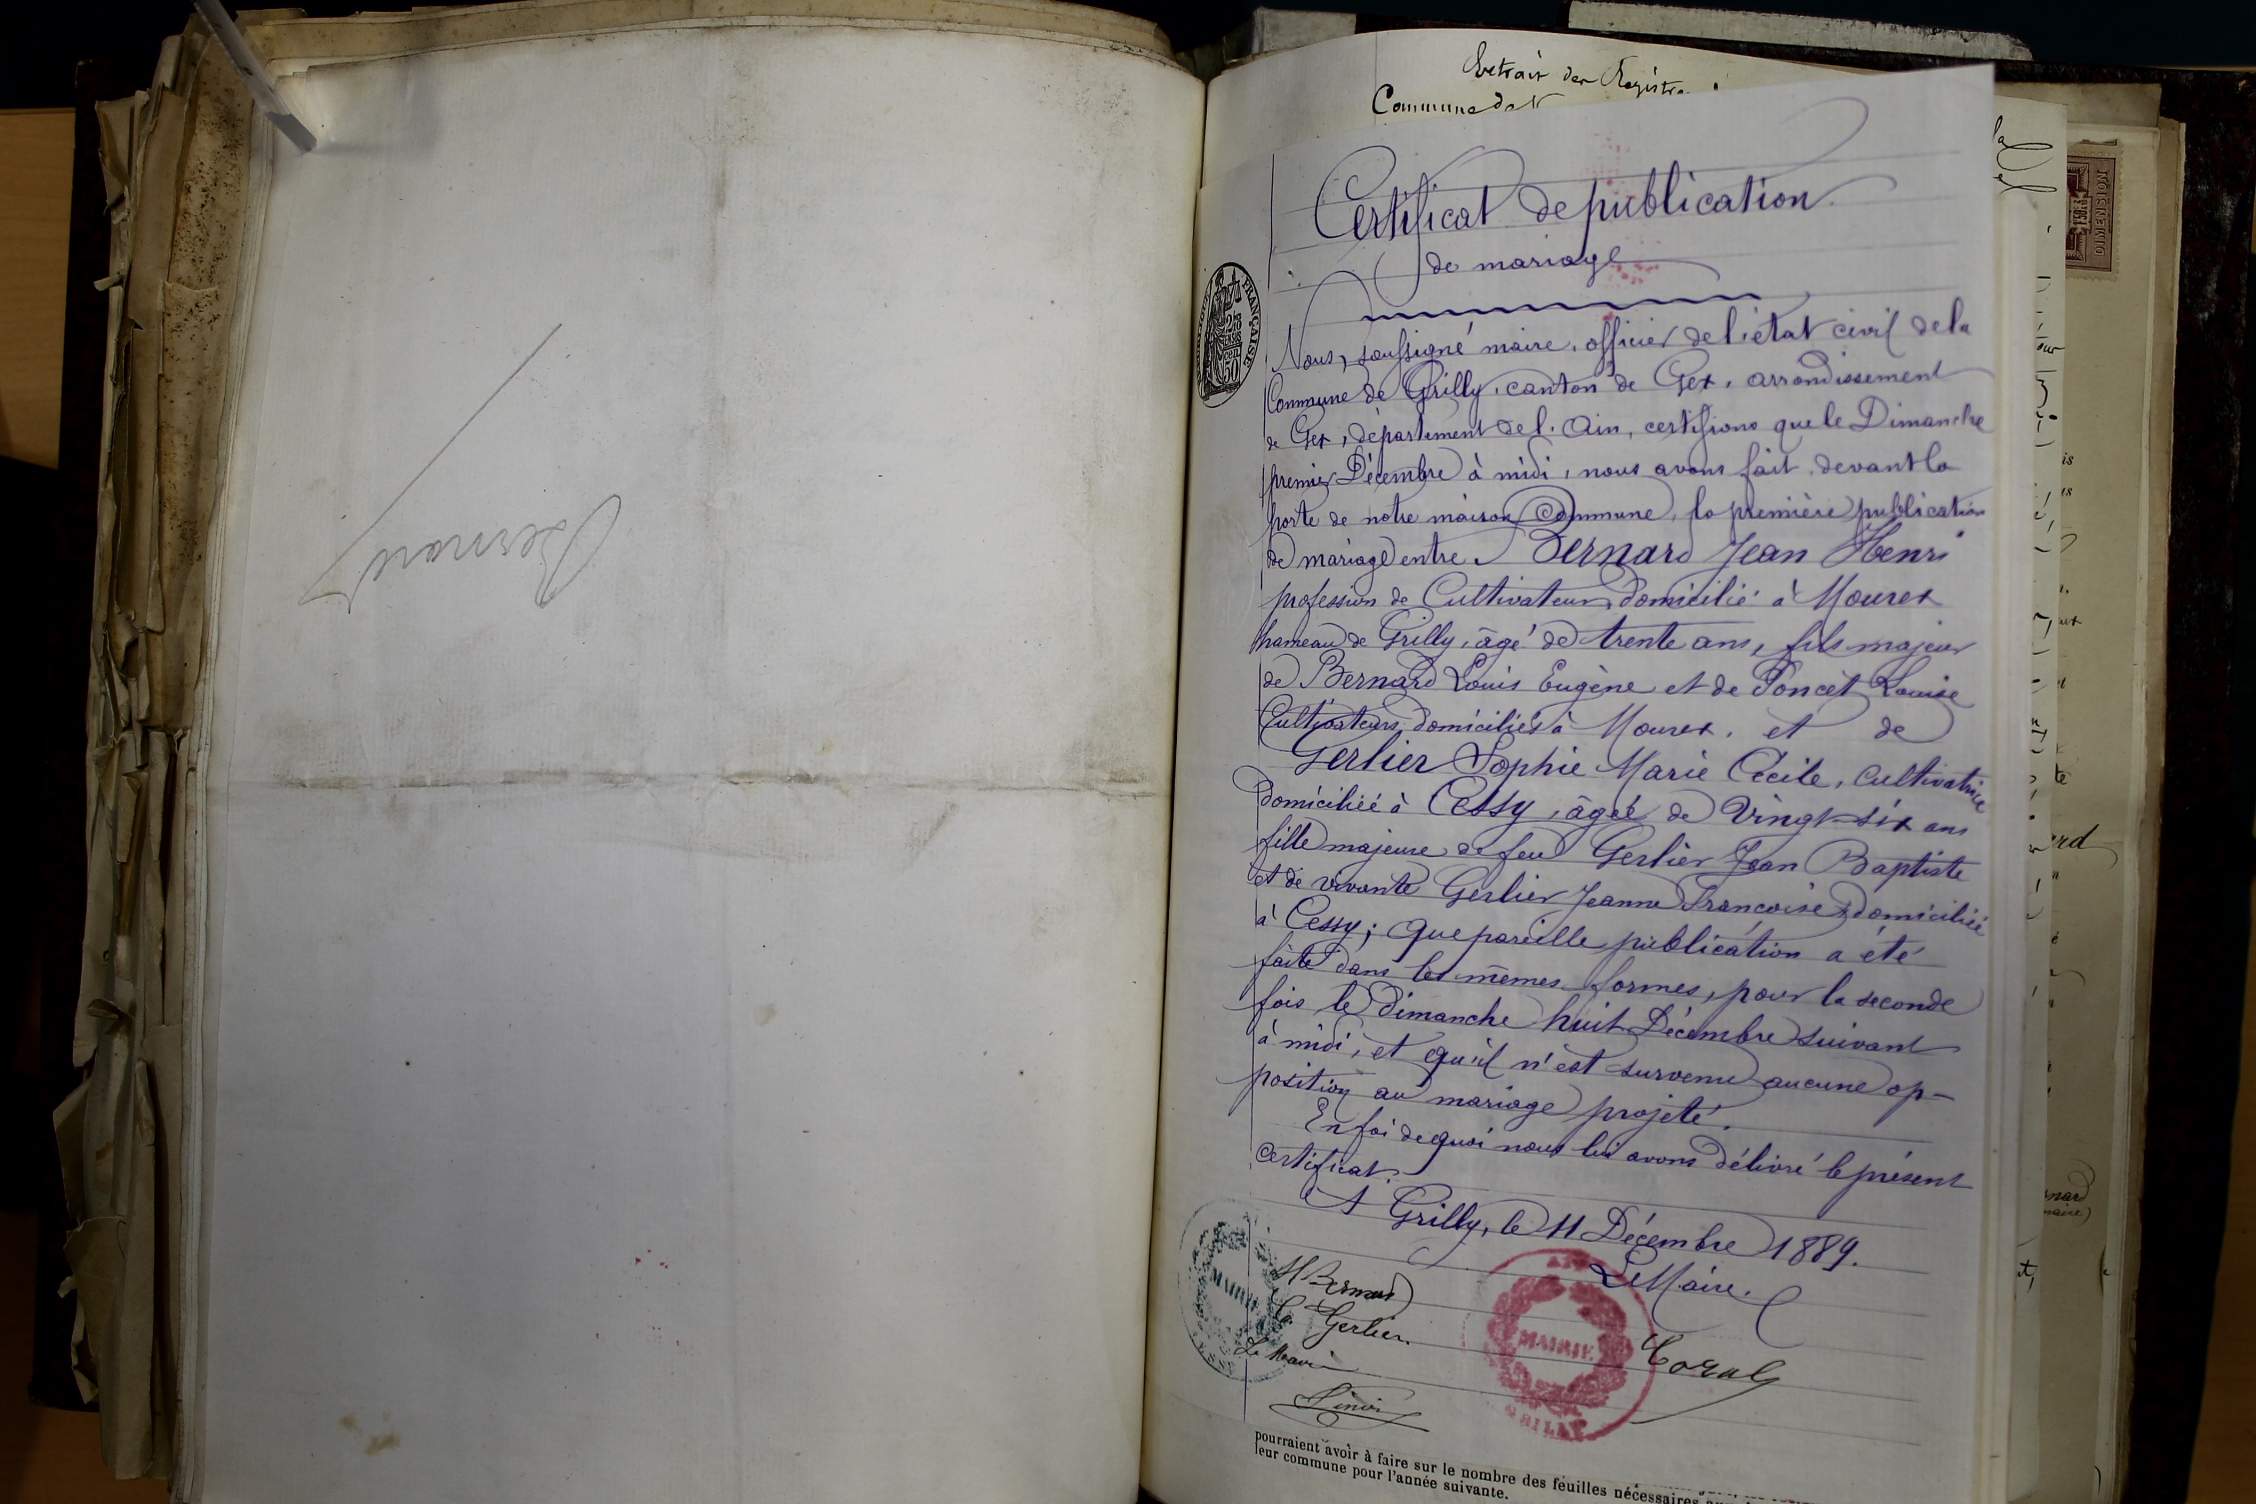 Bernard
Extrait des Registres
Commune de
Certificat de publication
de mariage
FRANÇAISE
50
DIMENSION
Nous, soussigné maire, officier de l'état civil de la
Commune de Grilly, canton de Gex, arrondissement
de Gex, département de l'Ain, certifions que le Dimanche
premier Décembre à midi, nous avons fait devant la
porte de notre maison Commune, la première publication
de mariage entre Bernard Jean Henri
profession de Cultivateur, domicilié à Mourex
hameau de Grilly, âgé de trente ans, fils majeur
de Bernard Louis Eugène et de Poncet Louise
Cultivateurs domiciliés à Mourex, et de
Gerlier Sophie Marie Cécile, cultivatrice
domiciliée à Cessy, âgée de vingt-six ans
fille majeure de feu Gerlier Jean Baptiste
et de vivante Gerlier Jeanne Françoise, domiciliée
à Cessy; que pareille publication a été
faite dans les mêmes formes, pour la seconde
fois le dimanche huit Décembre suivant
à midi, et qu'il n'est survenu aucune op-
position au mariage projeté.
En foi de quoi nous lui avons délivré le présent
certificat.
A Grilly, le 11 Décembre 1889.
Le Maire.
H Bernard
C. Gerlier
Le Maire
MAIRIE
MAIRIE
GRILLY
pourraient avoir à faire sur le nombre des feuilles nécessaires
leur commune pour l'année suivante.